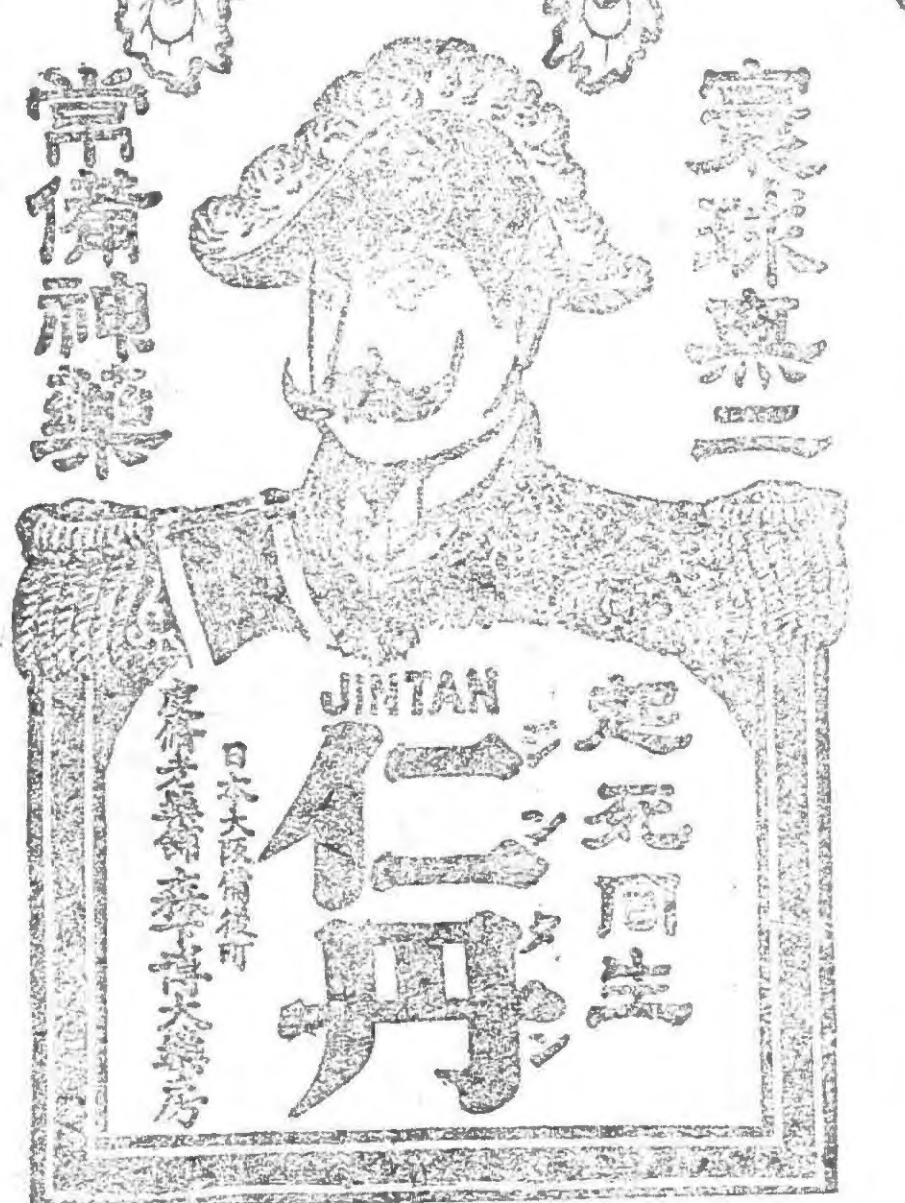 寰球無二
常備神藥
JINTAN
起死回生
ジンタン
仁丹
日本大阪道修町